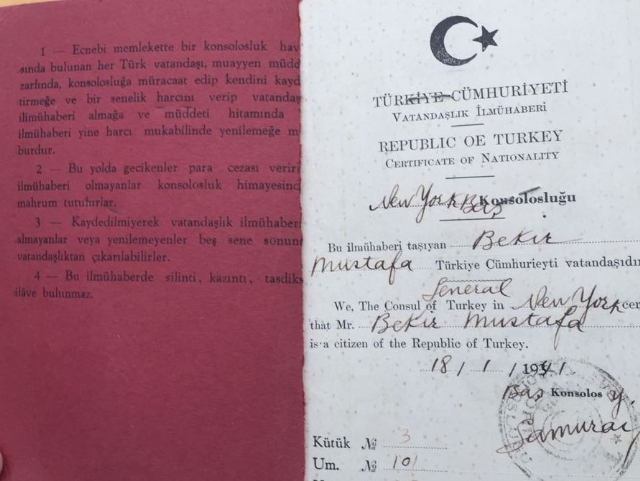 1 — Ecnebi memlekette bir konsolosluk hav
sında bulunan her Türk vatandaşı, muayyen müdd
zarfında, konsolosluğa müracaat edip kendini kayd
tirmeğe ve bir senelik harcını verip vatandaş
ilmühaberi almağa ve müddeti hitamında
ilmühaberi yine harcı mukabilinde yenilemeğe m
burdur.
2 — Bu yolda gecikenler para cezası verir
ilmühaberi olmayanlar konsolosluk himayesinc
mahrum tutulurlar.
3 — Kaydedilmiyerek vatandaşlık ilmühaberi
almayanlar veya yenilemeyenler beş sene sonun
vatandaşlıktan çıkarılabilirler.
4 — Bu ilmühaberde silinti, kazıntı, tasdik
ilâve bulunmaz.
TÜRKİYE CÜMHURİYETİ
VATANDAŞLIK İLMÜHABERİ
REPUBLIC OE TURKEY
CERTIFICATE OF NATIONALITY
New York Baş Konsolosluğu
Bu ilmühaberi taşıyan Bekir
Mustafa Türkiye Cümhurieyti vatandaşıdır
General
We, The Consul of Turkey in New York cer
that Mr. Bekir Mustafa
is a citizen of the Republic of Turkey.
18 / 1 / 1941
Baş Konsolos Y.
Kütük № 3
Um. № 101